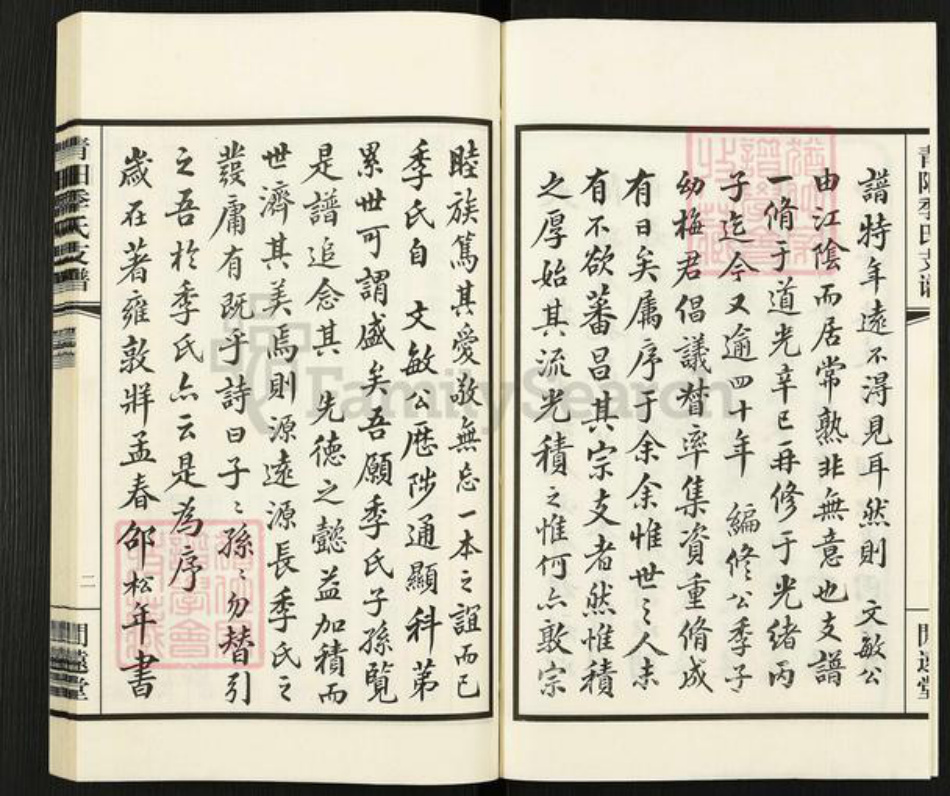 譜特年遠不得見耳然則 文敏公
由江陰而居常熟非無意也支譜
一脩于道光辛巳再修于光緒丙
子迄今又逾四十年 編修公季子
幼梅君倡議督率集資重脩成
有日矣属序于余余惟世之人未
有不欲蕃昌其宗支者然惟積
之厚始其流光積之惟何亦敦宗
睦族篤其愛敬無忘一本之誼而已
季氏自 文敏公歷陟通顯科第
累世可謂盛矣吾願季氏子孫覽
是譜追念其 先德之懿益加積而
世濟其美焉則源遠源長季氏之
發庸有既乎詩曰子〻孫〻勿替引
之吾於季氏亦云是為序
歲在著雍敦牂孟春邵松年書
季氏支譜
二
FamilySearch